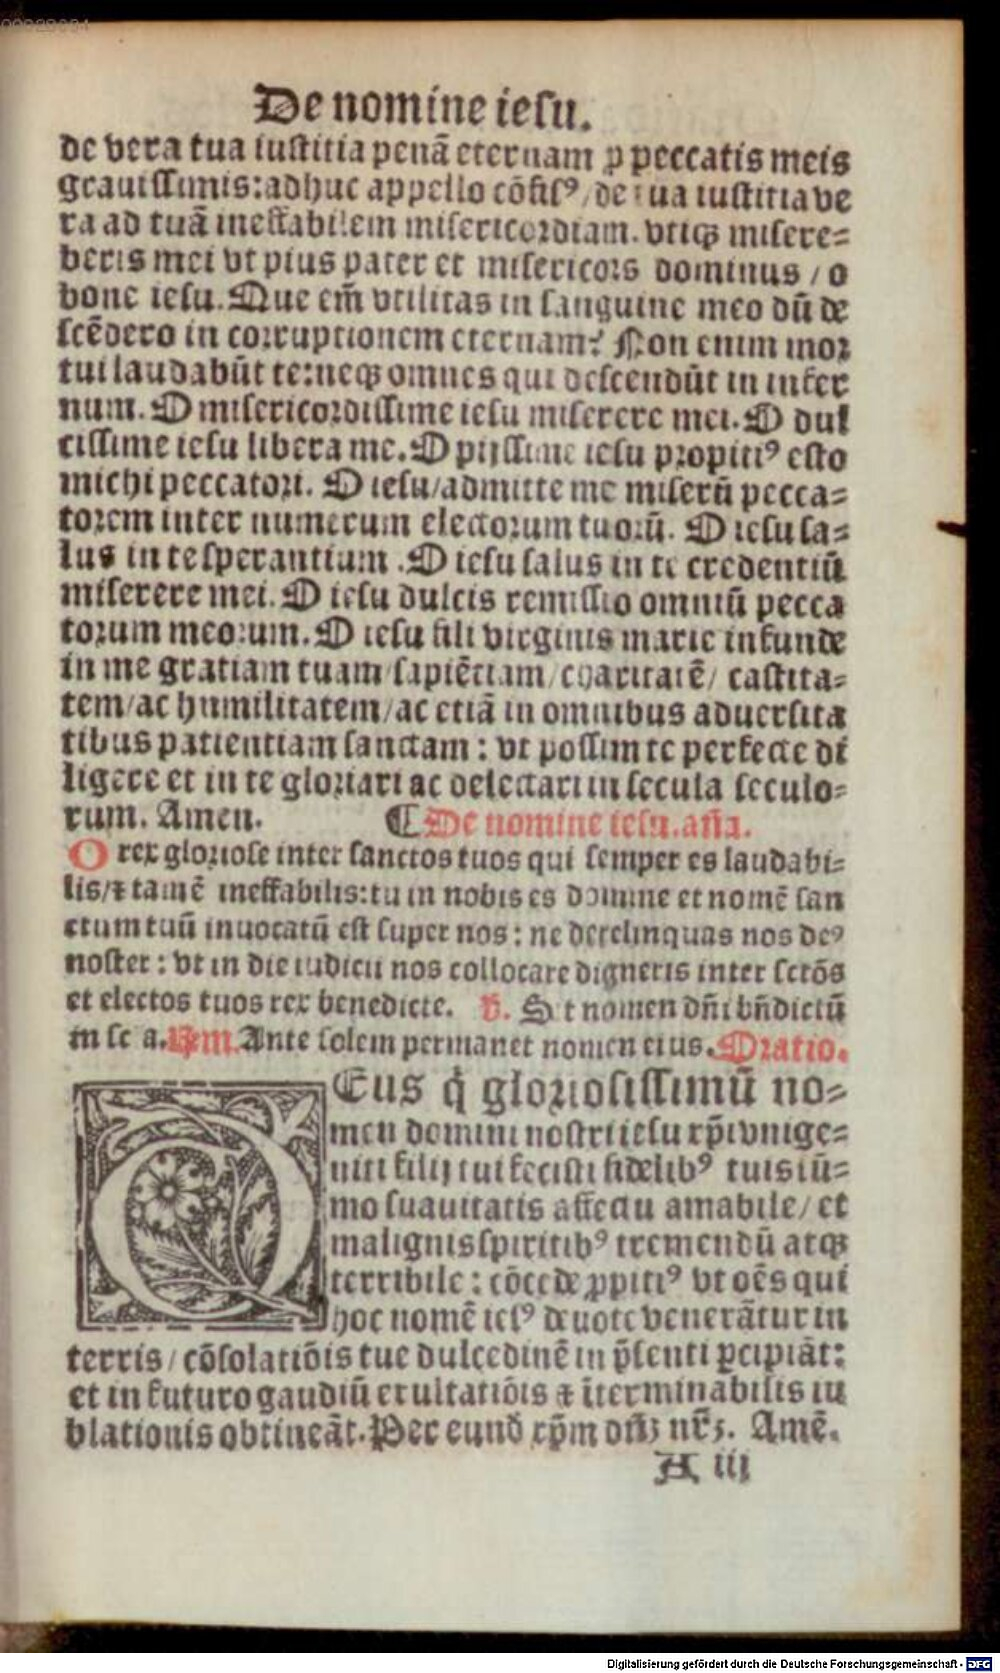 00029054
De nomine iesu.
de vera tua iustitia penā eternam ꝓ peccatis meis
grauissimis: adhuc appello cōfisꝰ / de tua iustitia ve
ra ad tuā ineffabilem misericordiam. vtiqꝫ misere⸗
beris mei vt pius pater et misericors dominus / o
bone iesu. Que em̄ vtilitas in sanguine meo dū de
scēdero in corruptionem eternam? Non enim mor
tui laudabūt te: neqꝫ omnes qui descendūt in infer
num. O misericordissime iesu miserere mei. O dul
cissime iesu libera me. O pijssime iesu propitiꝰ esto
michi peccatori. O iesu / admitte me miserū pecca⸗
torem inter numerum electorum tuorū. O iesu sa⸗
lus in te sperantium. O iesu salus in te credentiū
miserere mei. O iesu dulcis remissio omniū pecca
torum meorum. O iesu fili virginis marie infunde
in me gratiam tuam / sapiētiam / charitatē / castita⸗
tem / ac humilitatem / ac etiā in omnibus aduersita
tibus patientiam sanctam: vt possim te perfecte di
ligere et in te gloriari ac delectari in secula seculo⸗
rum. Amen. ¶ De nomine iesu. añа.
O rex gloriose inter sanctos tuos qui semper es laudabi⸗
lis / ⁊ tamē ineffabilis: tu in nobis es domine et nomē san
ctum tuū inuocatū est super nos: ne derelinquas nos deꝰ
noster: vt in die iudicii nos collocare digneris inter sctōs
et electos tuos rex benedicte. ℣. Sit nomen dñi bñdictū
in se a. Rem. Ante solem permanet nomen eius. Oratio.
DEus q̇ gloriosissimū no⸗
men domini nostri iesu xp̄i vnige⸗
niti filij tui fecisti fidelibꝰ tuis sū⸗
mo suauitatis affectu amabile / et
malignis spiritibꝰ tremendū atqꝫ
terribile: cōcede ꝓpitiꝰ vt oēs qui
hoc nomē iesꝰ deuote venerātur in
terris / cōsolatiōis tue dulcedinē in p̄senti ꝑcipiāt:
et in futuro gaudiū exultatiōis ⁊ īterminabilis iu
bilationis obtineāt. Per eund̄ xp̄m dñꝫ nr̄ꝫ. Amē.
A iij
Digitalisierung gefördert durch die Deutsche Forschungsgemeinschaft - DFG